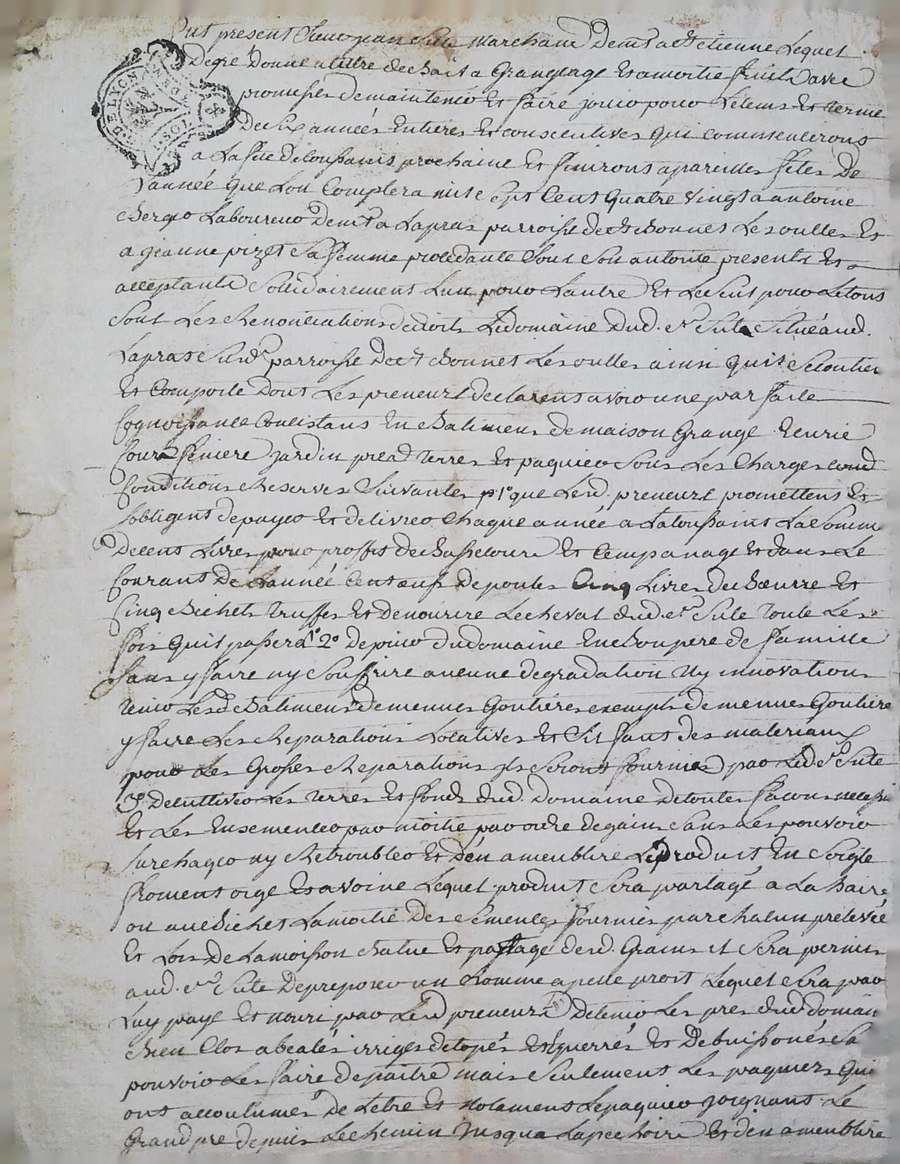 fut present sieur jean Sute marchand demt a st etienne Lequel
Degre Donne a titre de Bail a Grangeage et a moitie fruits avec
promesse de maintenir et faire jouir pour le tems et terme
De six années Entieres et consecutives qui commenceront
a La fete de toussaints prochaine et finiront a pareilles fetes De
L'année que Lon Comptera mil sept Cent quatre vingt a antoine
Berger Laboureur Demt a Lapras parroisse de st Bonnet Les oulles Et
a jeanne pizet Sa femme procedante sous son autorité presents Et
acceptants Sollidairement Lun pour Lautre Et Le seul pour Le tous
sous Les Renonciations de droits Le Domaine dud. sr Sute Situé aud.
Lapras susd. parroisse De st Bonnet Les oulles ainsi quil se contient
Et Comporte Dont Les preneurs declarent avoir une parfaite
Cognoissance Concistans En Batimens de maison Grange Ecurie
Cour feniere jardin pred terres Et paquier sous Les Charges
Conditions Reserves suivantes p1o que Lesd. preneurs promettent Et
sobligent de payer Et delivrer chaque année a La toussaint La somme
De cent Livres pour proffit de Bassecour Et Et dans Le
Courant De L'année Cent oeufs de poules Cinq Livres de Beurre Et
Cinq Bichets truffes Et de nourire Le cheval dud sr Sute toute Les
fois quil passera 2o De jouir du domaine En Bon pere de famille
sans y faire ny souffrire aucune degradation Ny innovation
tenir Lesd. Batimens de menues Goutieres exempts de menues Goutiere
y faire Les Reparations Locatives Et sil faut des materiaux
pour Les Grosses Reparations ils seront fournis par Led sr Sute
3o De cultiver Les terres Et fonds dud. Domaine de toutes façons
Et Les Ensemencer par moitié par ordre de gains sans Les pouvoir
surchager ny Retroubler Et d'en ameublire Le produit En Soigle
froment orge Et avoine Lequel produit sera partagé a La Raire
ou au Bichet La moitié Des semences fournies par chacun prélevée
Et Lors De La moisson Batue Et partage desd. Grains il sera permis
aud. sr Sute De preposer un homme a Lequel sera par
Luy payé Et nouri par Lesd preneurs De tenir Les pres dud domaine
Bien Clos irriges detopés Et Debuissonés
pouvoir Les faire depaitre mais seulement Les paquiers qui
ont accoutumés de Letre Et notament Le paquier joignant Le
Grand pre depuis Le chemin jusqua La Et d'en ameublire